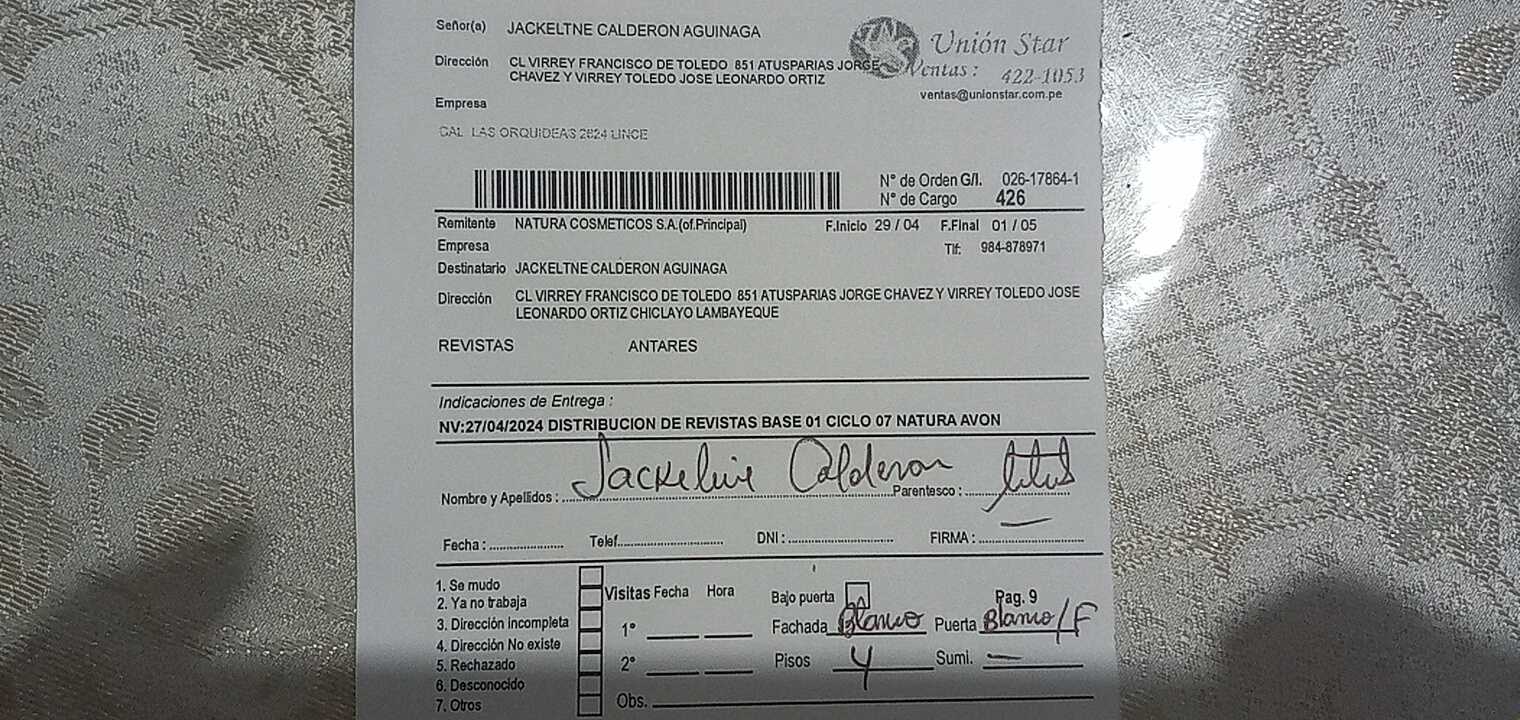 Señor(a) JACKELTNE CALDERON AGUINAGA
Unión Star
Dirección CL VIRREY FRANCISCO DE TOLEDO 851 ATUSPARIAS JORGE
CHAVEZ Y VIRREY TOLEDO JOSE LEONARDO ORTIZ
Ventas : 422-1053
ventas@unionstar.com.pe
Empresa
CAL LAS ORQUIDEAS 2624 LINCE
N° de Orden G/I. 026-17864-1
N° de Cargo 426
Remitente NATURA COSMETICOS S.A.(of.Principal) F.Inicio 29 / 04 F.Final 01 / 05
Empresa Tlf: 984-878971
Destinatario JACKELTNE CALDERON AGUINAGA
Dirección CL VIRREY FRANCISCO DE TOLEDO 851 ATUSPARIAS JORGE CHAVEZ Y VIRREY TOLEDO JOSE
LEONARDO ORTIZ CHICLAYO LAMBAYEQUE
REVISTAS ANTARES
Indicaciones de Entrega :
NV:27/04/2024 DISTRIBUCION DE REVISTAS BASE 01 CICLO 07 NATURA AVON
Nombre y Apellidos : Jackeline Calderon Parentesco :
Fecha : Telef. DNI : FIRMA :
1. Se mudo
2. Ya no trabaja
3. Dirección incompleta
4. Dirección No existe
5. Rechazado
6. Desconocido
7. Otros
Visitas Fecha Hora
1°
2°
Obs.
Bajo puerta Pag. 9
Fachada Blanco Puerta Blanco/F
Pisos 4 Sumi. —